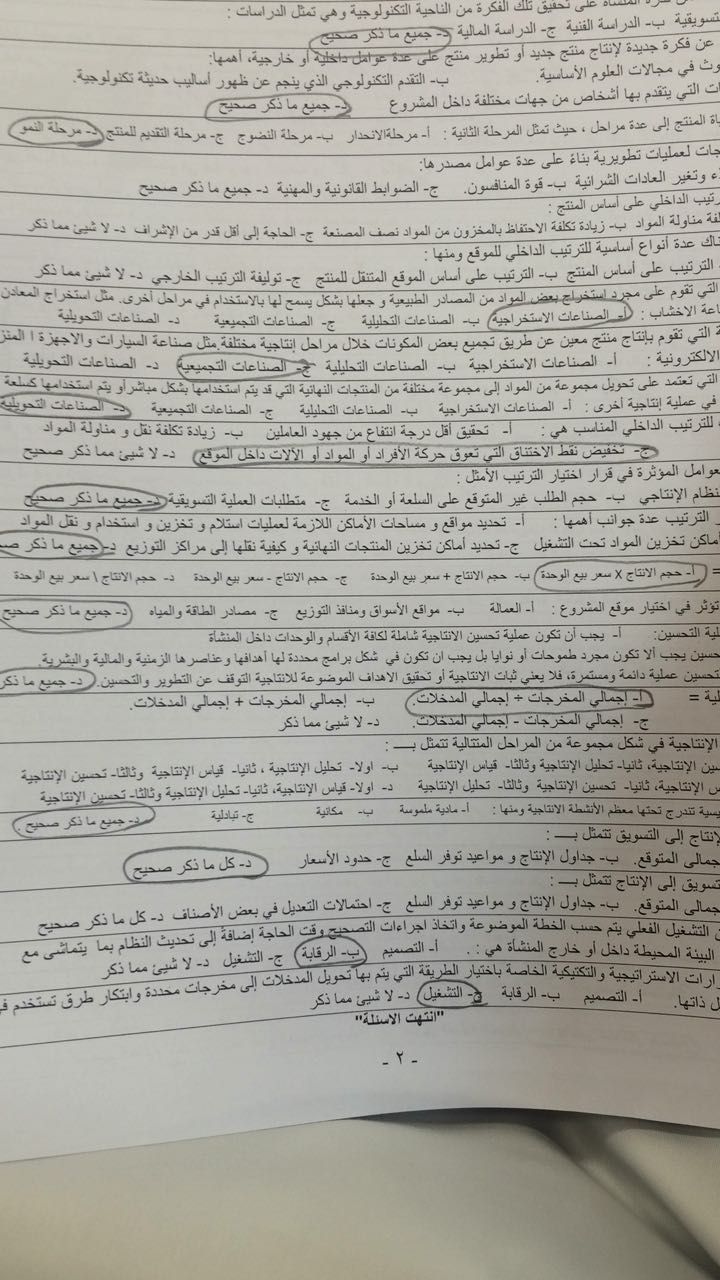 المنشأة على تحقيق تلك الفكرة من الناحية التكنولوجية وهي تمثل الدراسات :
تسويقية ب- الدراسة الفنية ج- الدراسة المالية د- جميع ما ذكر صحيح
عن فكرة جديدة لإنتاج منتج جديد أو تطوير منتج على عدة عوامل داخلية أو خارجية، أهمها:
وث في مجالات العلوم الأساسية. ب- التقدم التكنولوجي الذي ينجم عن ظهور أساليب حديثة تكنولوجية.
ات التي يتقدم بها أشخاص من جهات مختلفة داخل المشروع د- جميع ما ذكر صحيح
اة المنتج إلى عدة مراحل ، حيث تمثل المرحلة الثانية : أ- مرحلة الانحدار ب- مرحلة النضوج ج- مرحلة التقديم للمنتج د- مرحلة النمو
جات لعمليات تطويرية بناءً على عدة عوامل مصدرها:
لاء وتغير العادات الشرائية ب- قوة المنافسون. ج- الضوابط القانونية والمهنية د- جميع ما ذكر صحيح
رتيب الداخلي على أساس المنتج :
لفة مناولة المواد ب- زيادة تكلفة الاحتفاظ بالمخزون من المواد نصف المصنعة ج- الحاجة إلى أقل قدر من الإشراف د- لا شيئ مما ذكر
ناك عدة أنواع أساسية للترتيب الداخلي للموقع ومنها :
الترتيب على أساس المنتج ب- الترتيب على أساس الموقع المتنقل للمنتج ج- توليفة الترتيب الخارجي د- لا شيئ مما ذكر
التي تقوم على مجرد استخراج بعض المواد من المصادر الطبيعية و جعلها بشكل يسمح لها بالاستخدام في مراحل أخرى. مثل استخراج المعادن
اعة الاخشاب : أ- الصناعات الاستخراجية ب- الصناعات التحليلية ج- الصناعات التجميعية د- الصناعات التحويلية
ة التي تقوم بإنتاج منتج معين عن طريق تجميع بعض المكونات خلال مراحل إنتاجية مختلفة. مثل صناعة السيارات والاجهزة ا المنز
الالكترونية : أ- الصناعات الاستخراجية ب- الصناعات التحليلية ج- الصناعات التجميعية د- الصناعات التحويلية
التي تعتمد على تحويل مجموعة من المواد إلى مجموعة مختلفة من المنتجات النهائية التي قد يتم استخدامها بشكل مباشر أو يتم استخدامها كسلعة
في عملية إنتاجية أخرى : أ- الصناعات الاستخراجية ب- الصناعات التحليلية ج- الصناعات التجميعية د- الصناعات التحويلية
للترتيب الداخلي المناسب هي : أ- تحقيق أقل درجة انتفاع من جهود العاملين ب- زيادة تكلفة نقل و مناولة المواد
ج- تخفيض نقط الاختناق التي تعوق حركة الأفراد أو المواد أو الآلات داخل الموقع د- لا شيئ مما ذكر صحيح
عوامل المؤثرة في قرار اختيار الترتيب الأمثل :
نظام الإنتاجي ب- حجم الطلب غير المتوقع على السلعة أو الخدمة ج- متطلبات العملية التسويقية د- جميع ما ذكر صحيح
الترتيب عدة جوانب أهمها : أ- تحديد مواقع و مساحات الأماكن اللازمة لعمليات استلام و تخزين و استخدام و نقل المواد
أماكن تخزين المواد تحت التشغيل ج- تحديد أماكن تخزين المنتجات النهائية و كيفية نقلها إلى مراكز التوزيع د- جميع ما ذكر صح
= أ- حجم الانتاج X سعر بيع الوحدة ب- حجم الانتاج + سعر بيع الوحدة ج- حجم الانتاج - سعر بيع الوحدة د- حجم الانتاج \ سعر بيع الوحدة
تؤثر في اختيار موقع المشروع : أ- العمالة ب- مواقع الأسواق ومنافذ التوزيع ج- مصادر الطاقة والمياه د- جميع ما ذكر صحيح
لية التحسين: أ- يجب أن تكون عملية تحسين الانتاجية شاملة لكافة الأقسام والوحدات داخل المنشأة
حسين يجب ألا تكون مجرد طموحات أو نوايا بل يجب ان تكون في شكل برامج محددة لها أهدافها وعناصرها الزمنية والمالية والبشرية.
تحسين عملية دائمة ومستمرة، فلا يعني ثبات الإنتاجية أو تحقيق الاهداف الموضوعة للانتاجية التوقف عن التطوير والتحسين. د- جميع ما ذكر
لية = أ- إجمالي المخرجات ÷ إجمالي المدخلات. ب- إجمالي المخرجات + إجمالي المدخلات.
ج- إجمالي المخرجات - إجمالي المدخلات. د- لا شيئ مما ذكر
الإنتاجية في شكل مجموعة من المراحل المتتالية تتمثل بـــ :
سين الإنتاجية، ثانيا- تحليل الإنتاجية وثالثا- قياس الإنتاجية ب- اولا- تحليل الإنتاجية ، ثانيا- قياس الإنتاجية وثالثا- تحسين الإنتاجية
س الإنتاجية، ثانيا- تحسين الإنتاجية وثالثا- تحليل الإنتاجية د- اولا- قياس الإنتاجية، ثانيا- تحليل الإنتاجية وثالثا- تحسين الإنتاجية
يسية تندرج تحتها معظم الأنشطة الانتاجية ومنها : أ- مادية ملموسة ب- مكانية ج- تبادلية د- جميع ما ذكر صحيح .
لإنتاج إلى التسويق تتمثل بـــ :
جمالى المتوقع. ب- جداول الإنتاج و مواعيد توفر السلع ج- حدود الأسعار د- كل ما ذكر صحيح
تسويق إلى الإنتاج تتمثل بـــ :
جمالى المتوقع. ب- جداول الإنتاج و مواعيد توفر السلع ج- احتمالات التعديل في بعض الأصناف د- كل ما ذكر صحيح
ن التشغيل الفعلي يتم حسب الخطة الموضوعة واتخاذ اجراءات التصحيح وقت الحاجة إضافة إلى تحديث النظام بما يتماشى مع
البيئة المحيطة داخل أو خارج المنشأة هي : . أ- التصميم ب- الرقابة ج- التشغيل د- لا شيئ مما ذكر
رارات الاستراتيجية والتكتيكية الخاصة باختيار الطريقة التي يتم بها تحويل المدخلات إلى مخرجات محددة وابتكار طرق تستخدم في
ل ذاتها. أ- التصميم ب- الرقابة ج- التشغيل د- لا شيئ مما ذكر
"انتهت الاسئلة"
- ٢ -